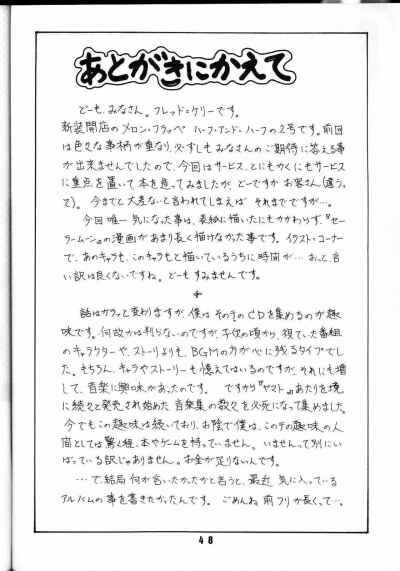 あとがきにかえて
どーも、みなさん。フレッド・ケリーです。
新装開店のメロン・フラッペ ハーフ・アンド・ハーフの2号です。前回
は色々な事柄が重なり、必ずしもみなさんのご期待に答える事
が出来ませんでしたので、今回はサービス、とにもかくにもサービス
に重点を置いて本を造ってみましたが、どーですか お客さん(違うっ
て)。今までと大差ないと言われてしまえば それまでですが…。
今回唯一気になった事は、表紙に描いたにもかかわらず、『セー
ラームーン』の漫画があまり長く描けなかった事です。イラスト・コーナー
で、あのキャラも、このキャラもと描いているうちに時間が… おっと、言
い訳は良くないですね。どーも すみませんです。
*
話はガラッと変わりますが、僕は その手のCDを集めるのが趣
味です。何故かは判らないのですが、子供の頃から、視ていた番組
のキャラクターや、ストーリーよりも、BGMの方が心に残るタイプでし
た。もちろん、キャラやストーリーも憶えてはいるのですが、それにも増
して、音楽に興味があったのです。 ですから『ヤマト』あたりを境
に続々と発売され始めた 音楽集の数々を必死になって集めました。
今でもこの趣味は続いており、お陰で僕は、この手の趣味の人
間としては驚く程、本やゲームを持っていません。いませんって別にい
ばっている訳じゃありません。お金が足りないんです。
…で、結局 何が言いたかったかと言うと、最近 気に入っている
アルバムの事を書きたかったんです。 ごめんね 前フリが長くって…。
48